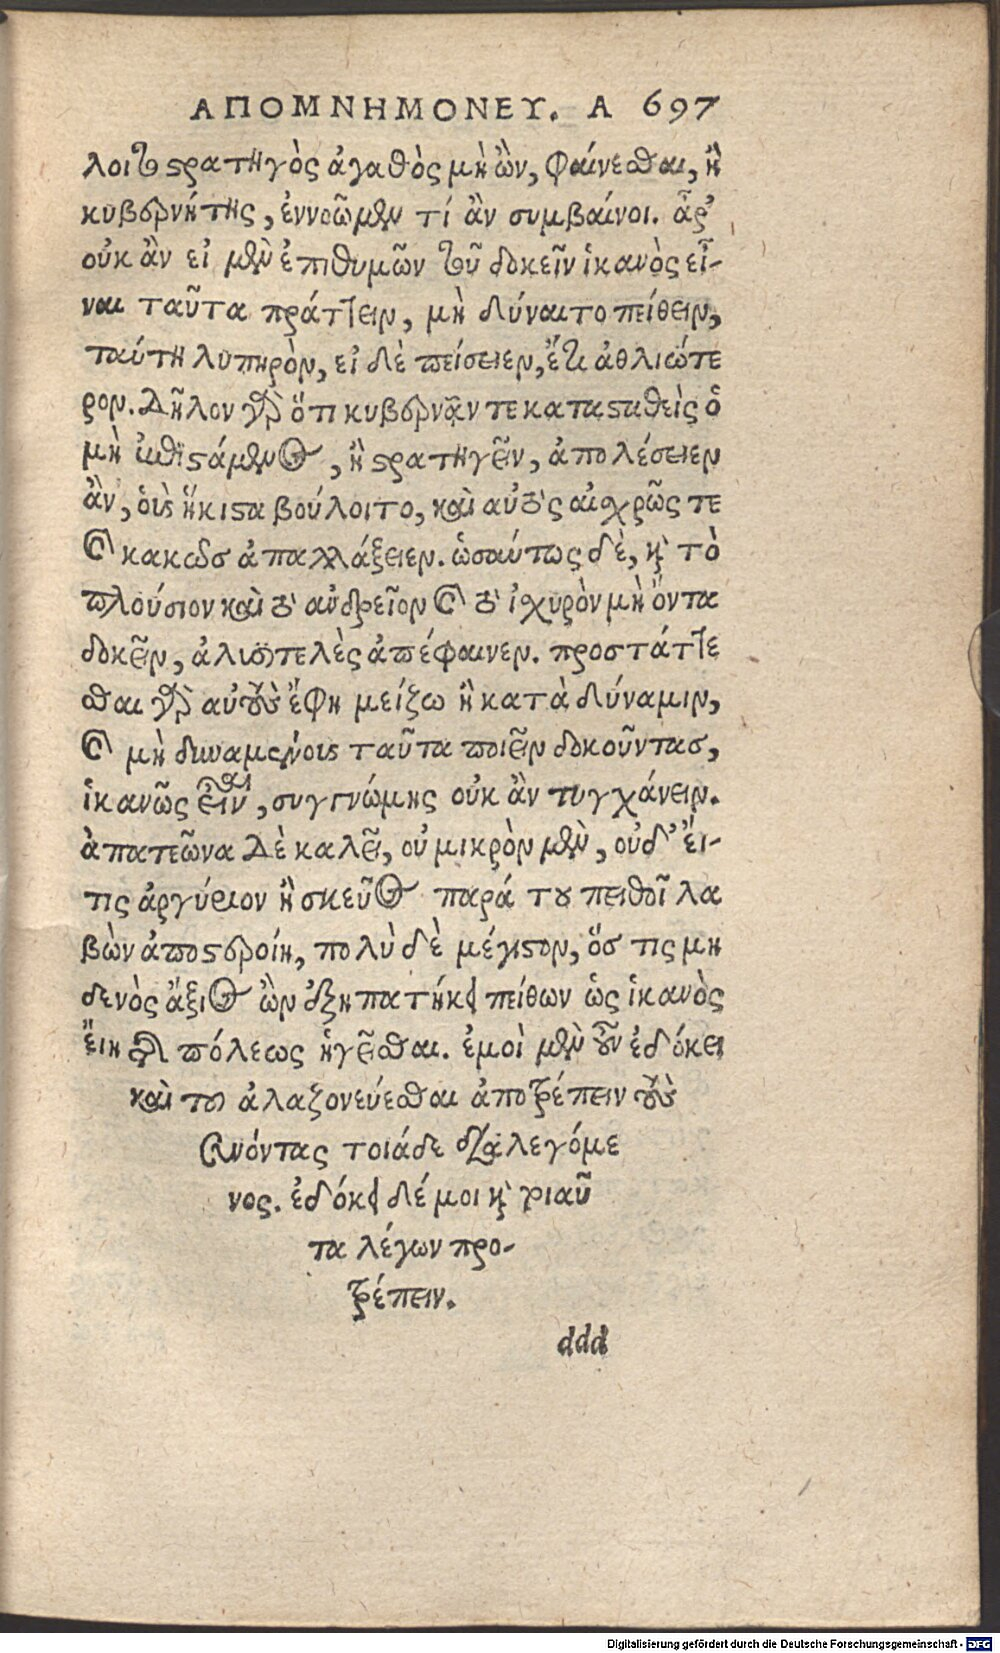 ΑΠΟΜΝΗΜΟΝΕΥ. Α 697
λοιτο στρατηγὸς ἀγαθὸς μὴ ὢν, φαίνεσθαι, ἢ
κυβερνήτης, ἐννοῶμεν τί ἂν συμβαίνοι. ἆρ᾽
οὐκ ἂν εἰ μὲν ἐπιθυμῶν τοῦ δοκεῖν ἱκανὸς εἶ-
ναι ταῦτα πράττειν, μὴ δύναιτο πείθειν,
ταύτη λυπηρὸν, εἰ δὲ πείσειεν, ἔτι ἀθλιώτε
ρον. Δῆλον γὰρ ὅτι κυβερνᾶν τε κατασταθεὶς ὁ
μὴ ἐπιστάμενος, ἢ στρατηγεῖν, ἀπολέσειεν
ἂν, οὓς ἥκιστα βούλοιτο, καὶ αὐτὸς αἰσχρῶς τε
καὶ κακῶς ἀπαλλάξειεν. ὡσαύτως δὲ, καὶ τὸ
πλούσιον καὶ τὸ ἀνδρεῖον καὶ τὸ ἰσχυρὸν μὴ ὄντα
δοκεῖν, ἀλυσιτελὲς ἀπέφαινεν. προστάττε
σθαι γὰρ αὐτοῖς ἔφη μείζω ἢ κατὰ δύναμιν,
καὶ μὴ δυναμένους ταῦτα ποιεῖν δοκοῦντας,
ἱκανῶς εἶναι, συγγνώμης οὐκ ἂν τυγχάνειν.
ἀπατεῶνα Δὲ καλεῖ, οὐ μικρὸν μὲν, οὐδ᾽ εἴ-
τις ἀργύριον ἢ σκεῦος παρά του πειθοῖ λα
βὼν ἀποστεροίη, πολὺ δὲ μέγιστον, ὅς τις μη
δενὸς ἄξιος ὢν ἐξηπατήκει πείθων ὡς ἱκανὸς
εἴη τῆς πόλεως ἡγεῖσθαι. ἐμοὶ μὲν οὖν ἐδόκει
καὶ του ἀλαζονεύεσθαι ἀποτρέπειν τοὺς
συνόντας τοιάδε διαλεγόμε
νος. ἐδόκει δέ μοι καὶ τοιαῦ
τα λέγων προ-
τρέπειν.
ddd
Digitalisierung gefördert durch die Deutsche Forschungsgemeinschaft - DFG